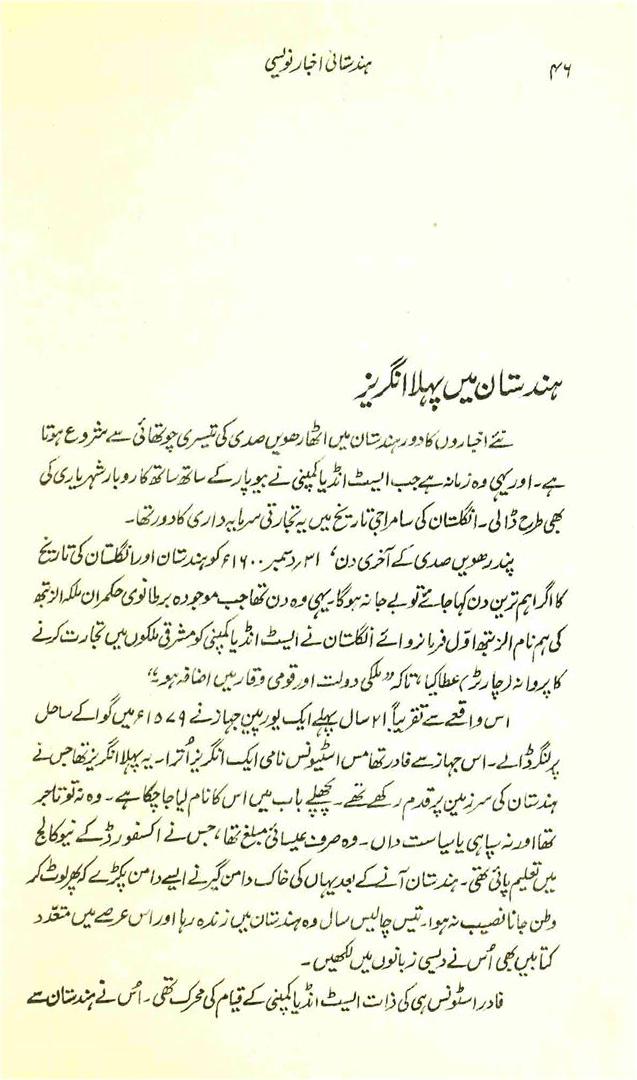 ۴۶
ہندستانی اخبار نویسی
ہندستان میں پہلا انگریز
نئے اخباروں کا دور ہندستان میں اٹھارھویں صدی کی تیسری چوتھائی سے شروع ہوتا
ہے۔ اور یہی وہ زمانہ ہے جب ایسٹ انڈیا کمپنی نے بیوپار کے ساتھ ساتھ کاروبار شہریاری کی
بھی طرح ڈالی۔ انگلستان کی سامراجی تاریخ میں یہ تجارتی سرمایہ داری کا دور تھا۔
پندرھویں صدی کے آخری دن، ۳۱ دسمبر ۱۶۰۰ء کو ہندستان اور انگلستان کی تاریخ
کا اگر اہم ترین دن کہا جائے تو بے جا نہ ہوگا۔ یہی وہ دن تھا جب موجودہ برطانوی حکمران ملکہ الزبتھ
کی ہم نام الزبتھ اوّل فرمانروائے انگلستان نے ایسٹ انڈیا کمپنی کو مشرقی ملکوں میں تجارت کرنے
کا پروانہ (چارٹر) عطا کیا، تاکہ "ملکی دولت اور قومی وقار میں اضافہ ہو۔"
اس واقعے سے تقریباً ۲۱ سال پہلے ایک یورپین جہاز نے ۱۵۷۹ء میں گوا کے ساحل
پر لنگر ڈالے۔ اس جہاز سے فادر تھامس اسٹیونس نامی ایک انگریز اُترا۔ یہ پہلا انگریز تھا جس نے
ہندستان کی سرزمین پر قدم رکھے تھے۔ پچھلے باب میں اس کا نام لیا جا چکا ہے۔ وہ نہ تو تاجر
تھا اور نہ سپاہی یا سیاست داں۔ وہ صرف عیسائی مبلغ تھا، جس نے اکسفورڈ کے نیو کالج
میں تعلیم پائی تھی۔ ہندستان آنے کے بعد یہاں کی خاک دامن گیر نے ایسے دامن پکڑے کہ پھر لوٹ کر
وطن جانا نصیب نہ ہوا۔ تیس چالیس سال وہ ہندستان میں زندہ رہا اور اس عرصے میں متعدّد
کتابیں بھی اُس نے دیسی زبانوں میں لکھیں۔
فادر اسٹونس ہی کی ذات ایسٹ انڈیا کمپنی کے قیام کی محرک تھی۔ اُس نے ہندستان سے